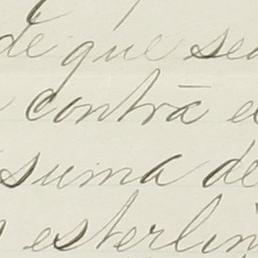 de que sea
contra e
suma de
esterlin